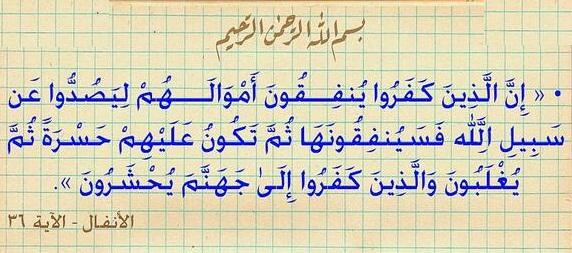 بسم الله الرحمن الرحيم
• « إِنَّ الَّذِينَ كَفَرُوا يُنفِقُونَ أَمْوَالَهُمْ لِيَصُدُّوا عَن
سَبِيلِ اللَّه فَسَيُنفِقُونَهَا ثُمَّ تَكُونُ عَلَيْهِمْ حَسْرَةً ثُمَّ
يُغْلَبُونَ وَالَّذِينَ كَفَرُوا إِلَىٰ جَهَنَّمَ يُحْشَرُونَ ».
الأنفال - الآية ٣٦